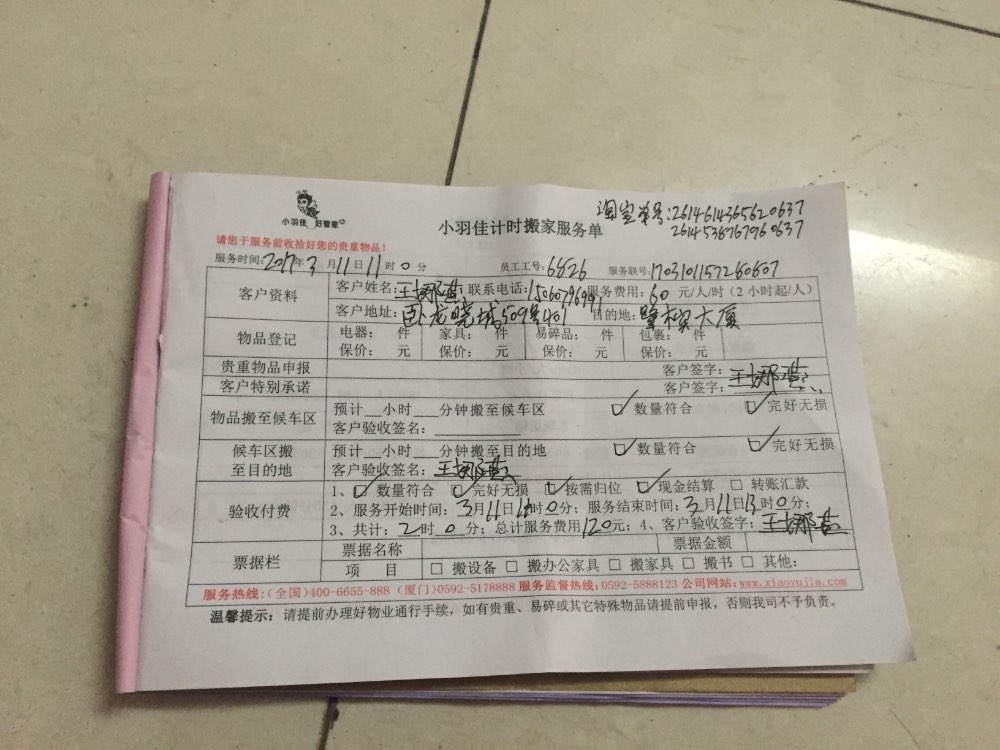 淘宝单号:2614614365620637
2614538767960637
小羽佳 好管家
小羽佳计时搬家服务单
请您于服务前收拾好您的贵重物品!
服务时间:2017年3月11日11时0分 员工工号:6826 服务联号:1703101157260607
客户资料 客户姓名:王娜燕 联系电话: 服务费用:60元/人/时(2小时起/人)
客户地址:卧龙晓城509号401 目的地:大厦
物品登记 电器: 件 家具: 件 易碎品: 件 包裹: 件
保价: 元 保价: 元 保价: 元 保价: 元
贵重物品申报 客户签字:王娜燕
客户特别承诺 客户签字:
物品搬至候车区 预计__小时___分钟搬至候车区 ☑ 数量符合 ☑ 完好无损
客户验收签名:
候车区搬至目的地 预计__小时___分钟搬至目的地 ☑ 数量符合 ☑ 完好无损
客户验收签名:王娜燕
验收付费 1、☑ 数量符合 ☑ 完好无损 ☑ 按需归位 ☑ 现金结算 □ 转账汇款
2、服务开始时间:3月11日11时0分;服务结束时间:3月11日13时0分;
3、共计:2时0分;总计服务费用120元;4、客户验收签字:王娜燕
票据栏 票据名称 票据金额
项 目 □ 搬设备 □ 搬办公家具 □ 搬家具 □ 搬书 □ 其他:
服务热线:(全国)400-6655-888 (厦门)0592-5178888 服务监督热线:0592-5888123 公司网站:www.xiaoyujia.com
温馨提示:请提前办理好物业通行手续,如有贵重、易碎或其它特殊物品请提前申报,否则我司不予负责。